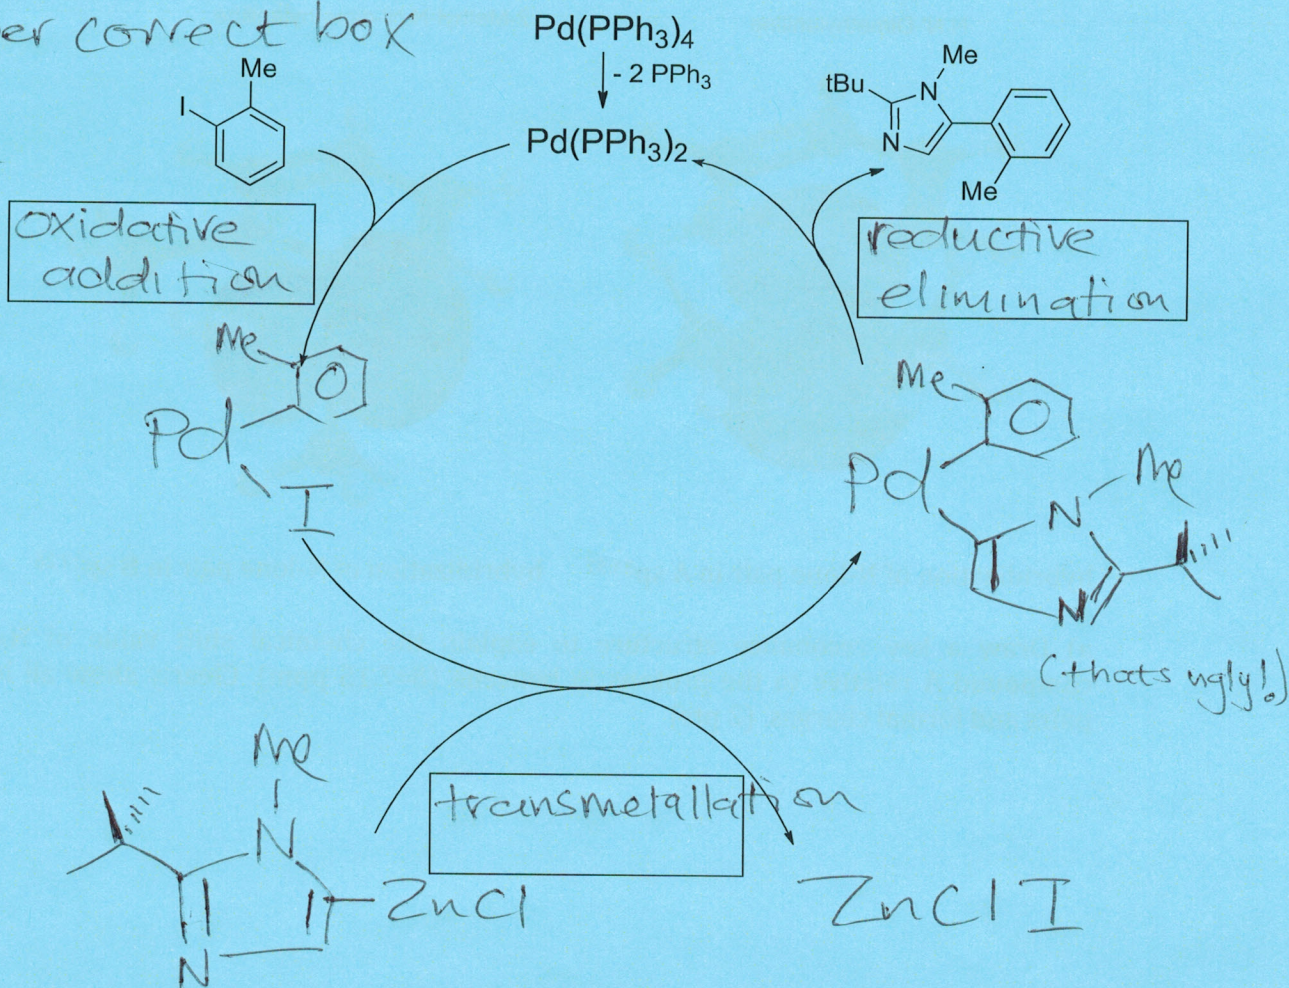 er correct box
Pd(PPh3)4
- 2 PPh3
Pd(PPh3)2
Me
I
tBu
Me
N
N
Me
oxidative
addition
reductive
elimination
Me
Pd
I
Me
Pd
Me
N
N
(thats ugly!)
transmetallation
Me
N
N
ZnCl
ZnClI